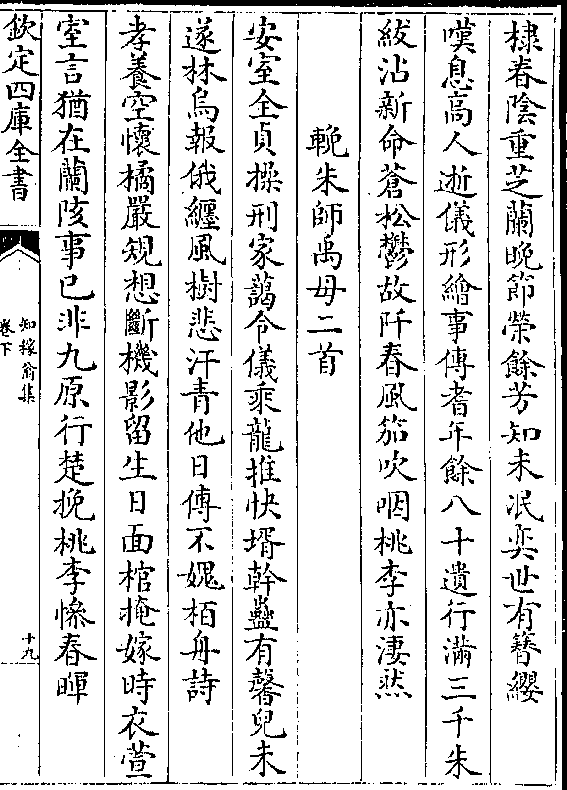 棣春陰重芝蘭晩節榮餘芳知未冺奕世有簪纓
嘆息高人逝儀形繪事傳耆年餘八十遺行滿三千朱
紱沾新命蒼松鬱故阡春風笳吹咽桃李亦凄然
輓朱師禹母二首
安室全貞操刑家藹令儀乘龍推快壻幹蠱有馨兒未
遂林烏報俄纏風樹悲汗青他日傳不媿栢舟詩
孝養空懷橘嚴規想斷機影留生日面棺掩嫁時衣萱
室言猶在蘭陔事已非九原行楚挽桃李慘春暉
欽定四庫全書
知稼翁集
卷下
十九